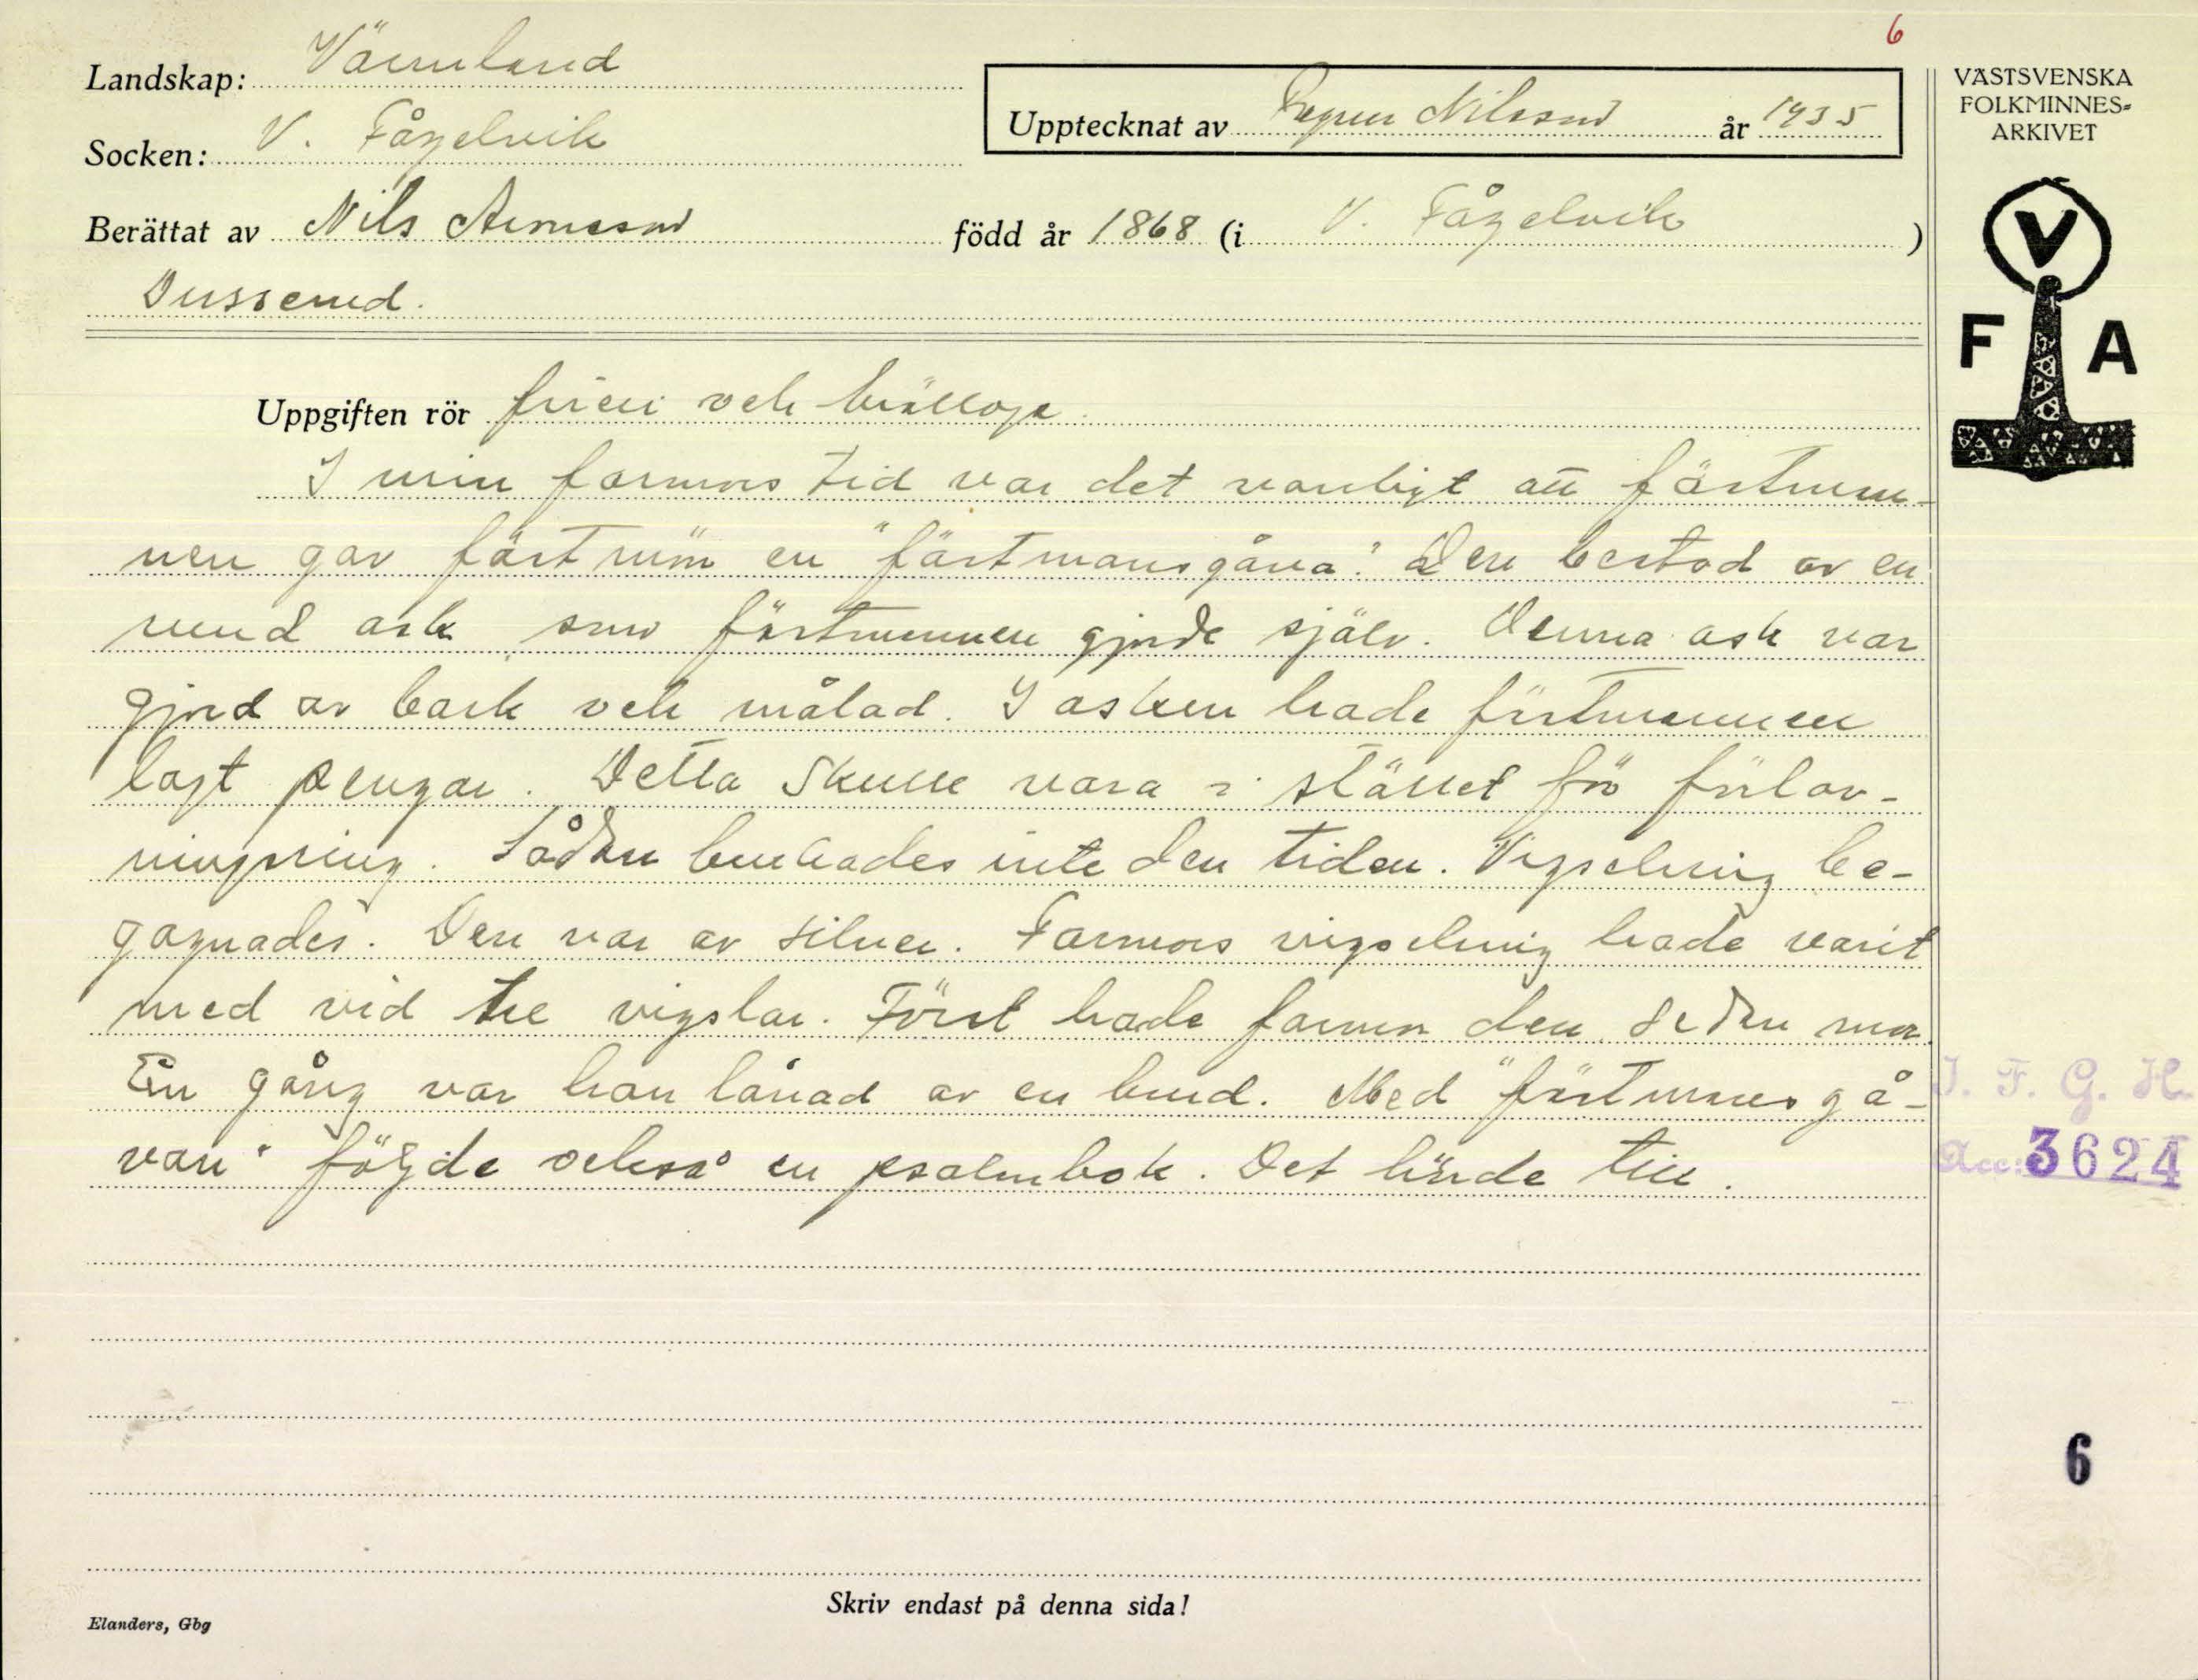 6
Landskap: Värmland
Socken: V. Fågelvik
Upptecknat av Ragnar Nilsson år 1935
VÄSTSVENSKA
FOLKMINNES-
ARKIVET
Berättat av Nils Arnesson född år 1868 (i V. Fågelvik )
Dusserud.
V
F A
Uppgiften rör frieri och bröllop.
I min farmors tid var det vanligt att fästman-
nen gav fästmön en "fästmansgåva". Den bestod av en
rund ask som fästmannen gjorde själv. Denna ask var
gjord av bark och målad. I asken hade fästmannen
lagt pengar. Detta skulle vara i stället för förlov-
ningsring. Sådan brukades inte den tiden. Vigselring be-
gagnades. Den var av silver. Farmors vigselring hade varit
med vid tre vigslar. Först hade farmor den sedan mor.
En gång var han lånad av en brud. Med "fästmansgå-
van" följde också en psalmbok. Det hörde till.
I. F. G. H.
Acc: 3624
6
Skriv endast på denna sida!
Elanders, Gbg